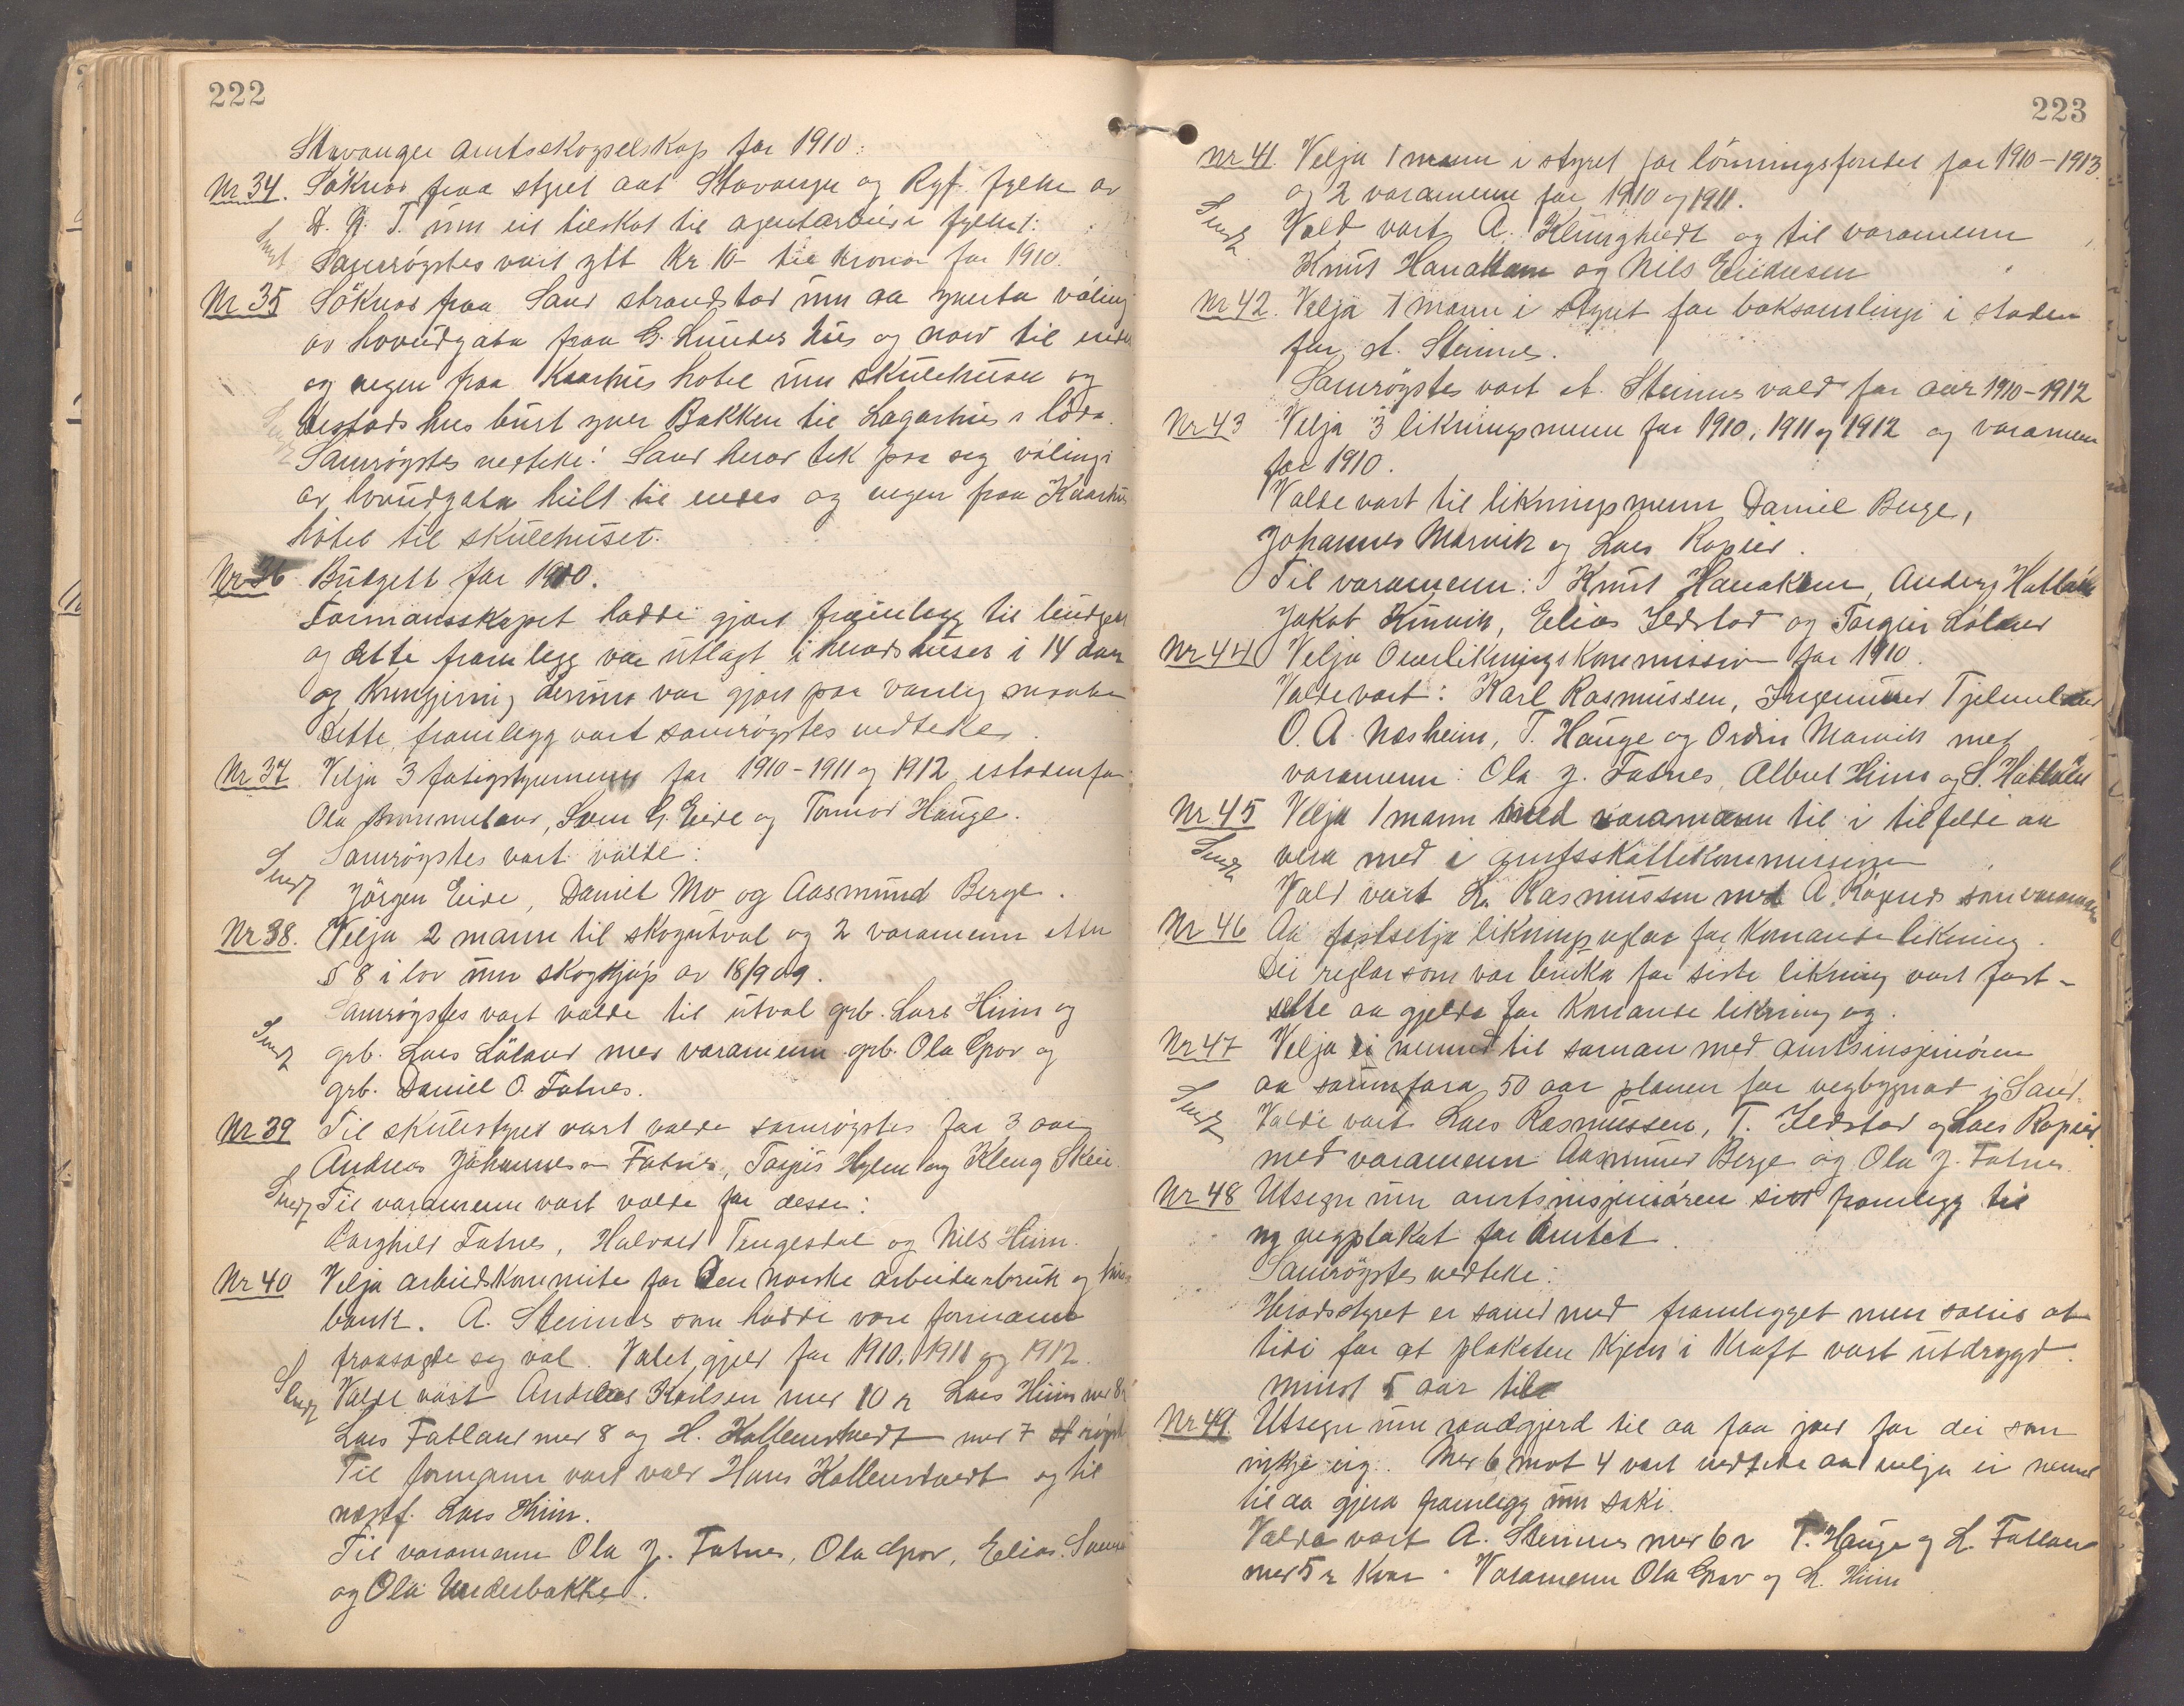 222
Stavanger amtsskogselskap for 1910:
Nr 34. Söknad fraa styret aat Stavanger og Ryf. fylke av
D. N. T. um eit tilskot til agentarbeid i fylket:
Sendt Samrøystes vart ytt Kr 10 tie kronor for 1910.
Nr 35 Söknad fraa Sand strandstad um aa yverta völing
av hovudgata fraa G. Hundes hus og nord til enden
og vegen fraa Kaarhus hotel um skulehuset og
bestads hus burt yver Bakken til Lagarhus löda.
Samrøystes vedteke: Sand herad tek paa seg völingi
av hovudgata heilt til endes og vegen fraa Kaarhus
hotel til skulehuset.
Nr 36 Budgett for 1910.
Formannsskapet hadde gjort framlegg til budgett
og dette framlegg var utlagt i heradshuset i 14 dagar
og kunngjering derum var gjort paa vanleg maate
Dette framlegg vart samrøystes vedteke.
Nr 37 Velja 3 fatigstyremenn for 1910-1911 og 1912 istadenfor
Ola Brommeland, Sven G. Eide og Tormod Hauge.
Samrøystes vart valde:
Sendt Jörgen Eide, Daniel Mo og Aasmund Berge.
Nr 38. Velja 2 mann til skogutval og 2 varamenn etter
§ 8 i lov um skogkjöp av 18/9 09.
Samrøystes vart valde til utval grb. Lars Hiim og
Sendt grb. Lars Löland med varamenn grb. Ola Grov og
grb. Daniel O. Fatnes.
Nr 39 Til skulestyret vart valde samrøystes for 3 aar
Andreas Johannesen Fatnes, Torgeis Hylen og Kleng Skeie
Sendt Til varamenn vart valde for desse:
Borghild Fatnes, Halvard Tengesdal og Nils Hiim.
Nr 40 Velja arbeidskomite for Den norske arbeidarbruk og hus
bank. A. Steinnes som hadde vore formann
fraasagde seg val. Valet gjeld for 1910, 1911 og 1912.
Sendt Valde vart Andreas Karlsen med 10 r Lars Hiim med 8 r
Lars Fatland med 8 og H. Kallenstvedt med 7 røyst
Til formann vart vald Hans Kallenstvedt og til
næstf. Lars Hiim.
Til varamenn Ola J. Fatnes, Ola Grov, Elias
og Ola Underbakke.
223
Nr 41. Velja 1 mann i styret for lönningsfondet for 1910-1913.
og 2 varamenn for 1910 og 1911.
Sendt Vald vart A. Klungtvedt og til varamenn
Knut Hanakam og Nils Eidesen
Nr 42. Velja 1 mann i styret for boksamlingi i staden
for A. Steinnes.
Samrøystes vart A. Steinnes vald for aar 1910-1912
Nr 43 Velja 3 likningsmenn for 1910, 1911 og 1912 og varamenn
for 1910.
Valde vart til likningsmenn Daniel Berge,
Johannes Marvik og Lars Ropeid.
Til varamenn: Knut Hanakam, Anders
Jakob Kinvik, Elias Jelstad og Torgeir Löland
Nr 44 Velja Overlikningskommission for 1910.
Valde vart: Karl Rasmussen, Ingemund Tjelmeland
O. A. Næsheim, T. Hauge og Ordin Marvik med
varamenn: Ola J. Fatnes, Albret Hiim og S.
Nr 45 Velja 1 mann med varamann til i tilfelde aa
Sendt vera med i amtsskattekommissionen
Vald vart L. Rasmussen med A. Röynes som varamann
Nr 46 Aa fastsetja likningsreglar for komande likning.
Dei reglar som var bruka for siste likning vart fast-
sette aa gjelda for komande likning og.
Nr 47 Velja ei nemnd til saman med amtsinsjeniören
aa samanfara 50 aar planen for vegbygnad i Sand.
Sendt Valde vart Lars Rasmussen, T. Jelstad og Lars Ropeid
med varamenn Aasmund Berge og Ola J. Fatnes.
Nr 48 Utsegn um amtsinsjeniören sitt framlegg til
ny vegplakat for amtet.
Samrøystes vedteke:
Heradsstyret er samd med framlegget men soleis at
tidi for at plakaten kjem i kraft vart utdrygd
minst 5 aar til
Nr 49. Utsegn um raadgjerd til aa faa jord for dei som
inkje eig. Med 6 mot 4 vart vedteke aa velja ei nemnd
til aa gjera framlegg um saki.
Valde vart A. Steinnes med 6 r T. Hauge og L. Fatland
med 5 r kvar. Varamenn Ola Grov og L. Hiim